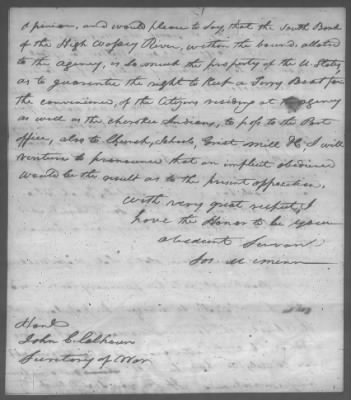 opinion, and would please to say, that the South Bank
of the High Wassey River, within the bounds allotted
to the agency, is so much the property of the U. States,
as to guarantee the right to Keep a Ferry Boat for
the convenience, of the Citizens residing at the agency
as well as the cherokee Indians, to pass to the Post
office, also to Church, Schools, Grist mill &c, I will
venture to pronounce that an implicit obedience
would be the result as to the present opposition.
With very great respect, I
have the Honor to be your
obedient Servant
Jos. McMinn
Honl
John C. Calhoun
Secretary of War